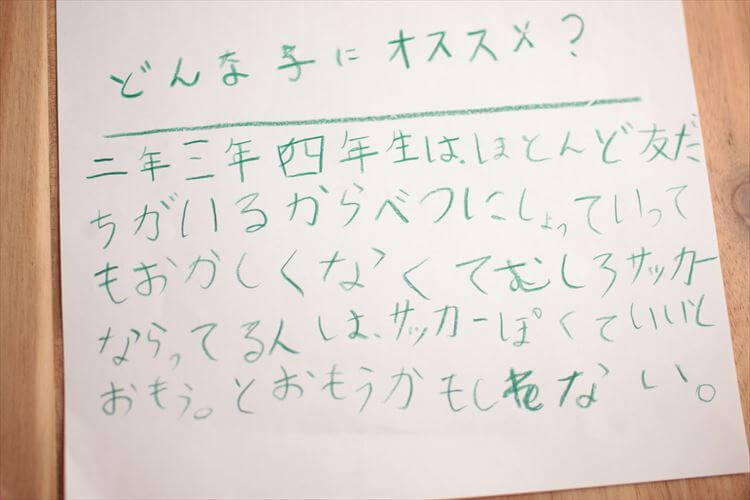 どんな子にオススメ?
二年三年四年生は、ほとんど友だ
ちがいるからべつにしょっていって
もおかしくなくてむしろサッカー
ならってる人は、サッカーぽくていいと
おもう。とおもうかもしれない。